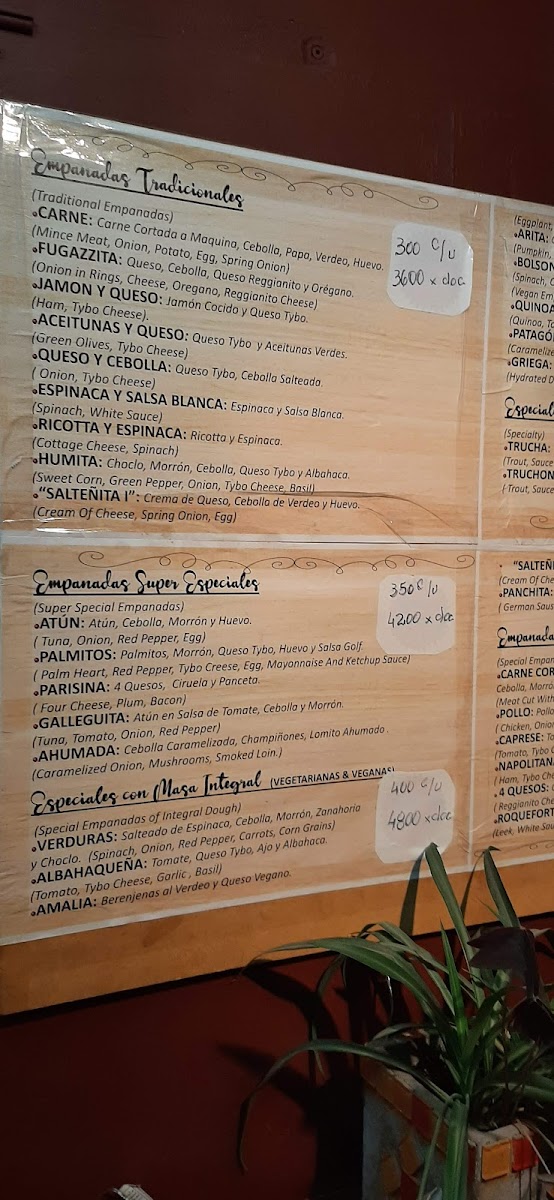 Empanadas Tradicionales
(Traditional Empanadas)
•CARNE: Carne Cortada a Maquina, Cebolla, Papa, Verdeo, Huevo.
(Mince Meat, Onion, Potato, Egg, Spring Onion)
•FUGAZZITA: Queso, Cebolla, Queso Reggianito y Orégano.
(Onion in Rings, Cheese, Oregano, Reggianito Cheese)
•JAMON Y QUESO: Jamón Cocido y Queso Tybo.
(Ham, Tybo Cheese).
•ACEITUNAS Y QUESO: Queso Tybo y Aceitunas Verdes.
(Green Olives, Tybo Cheese)
•QUESO Y CEBOLLA: Queso Tybo, Cebolla Salteada.
( Onion, Tybo Cheese)
•ESPINACA Y SALSA BLANCA: Espinaca y Salsa Blanca.
(Spinach, White Sauce)
•RICOTTA Y ESPINACA: Ricotta y Espinaca.
(Cottage Cheese, Spinach)
•HUMITA: Choclo, Morrón, Cebolla, Queso Tybo y Albahaca.
(Sweet Corn, Green Pepper, Onion, Tybo Cheese, Basil)
•"SALTEÑITA I": Crema de Queso, Cebolla de Verdeo y Huevo.
(Cream Of Cheese, Spring Onion, Egg)
300 c/u
3600 x doc
Empanadas Super Especiales
(Super Special Empanadas)
•ATÚN: Atún, Cebolla, Morrón y Huevo.
( Tuna, Onion, Red Pepper, Egg)
•PALMITOS: Palmitos, Morrón, Queso Tybo, Huevo y Salsa Golf
( Palm Heart, Red Pepper, Tybo Creese, Egg, Mayonnaise And Ketchup Sauce)
•PARISINA: 4 Quesos, Ciruela y Panceta.
( Four Cheese, Plum, Bacon)
•GALLEGUITA: Atún en Salsa de Tomate, Cebolla y Morrón.
(Tuna, Tomato, Onion, Red Pepper)
•AHUMADA: Cebolla Caramelizada, Champiñones, Lomito Ahumado .
(Caramelized Onion, Mushrooms, Smoked Loin.)
350 c/u
4200 x doc
Especiales con Masa Integral (VEGETARIANAS & VEGANAS)
(Special Empanadas of Integral Dough)
•VERDURAS: Salteado de Espinaca, Cebolla, Morrón, Zanahoria
y Choclo. (Spinach, Onion, Red Pepper, Carrots, Corn Grains)
•ALBAHAQUEÑA: Tomate, Queso Tybo, Ajo y Albahaca.
(Tomato, Tybo Cheese, Garlic , Basil)
•AMALIA: Berenjenas al Verdeo y Queso Vegano.
400 c/u
4800 x doc
(Eggplant,
•ARITA:
(Pumpkin,
•BOLSON
(Spinach,
(Vegan Em
•QUINOA
(Quinoa,
•PATAGÓ
(Caramelize
•GRIEGA:
(Hydrated D
Especial
(Specialty)
•TRUCHA:
(Trout, Sauce
•TRUCHON
( Trout, Sauce
• "SALTEÑI
(Cream Of Che
•PANCHITA:
( German Saus
Empanada
(Special Empan
•CARNE COR
Cebolla, Morró
(Meat Cut With
•POLLO: Pollo
( Chicken, Onio
•CAPRESE: To
(Tomato, Tybo C
•NAPOLITAN
( Ham, Tybo Che
•4 QUESOS:
( Reggianito Che
•ROQUEFORT
(Leek, White Sa